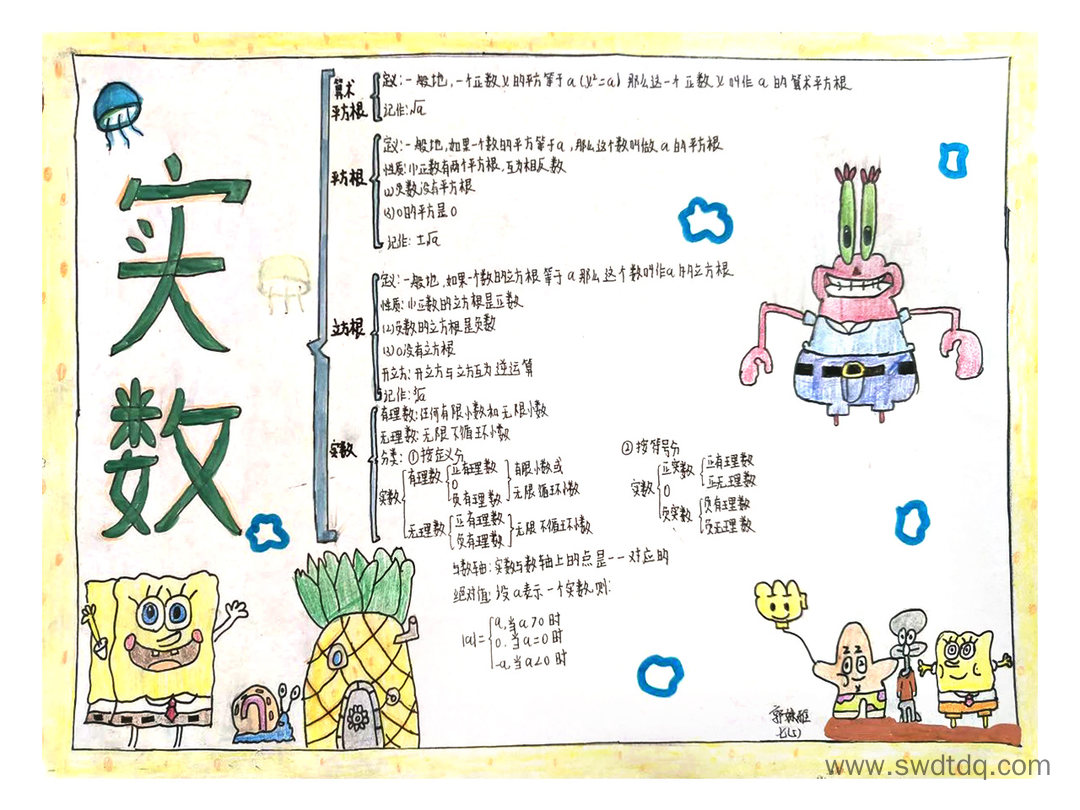 实数
算术
平方根
定义:一般地,一个正数x的平方等于a(x²=a)那么这一个正数x叫作a的算术平方根
记作:√a
平方根
定义:一般地,如果一个数的平方等于a,那么这个数叫做a的平方根
性质:(1)正数有两个平方根,互为相反数
(2)负数没有平方根
(3)0的平方是0
记作:±√a
立方根
定义:一般地,如果一个数的立方根等于a那么这个数叫作a的立方根
性质:(1)正数的立方根是正数
(2)负数的立方根是负数
(3)0没有立方根
开立方:开立方与立方互为逆运算
记作:∛a
实数
有理数:任何有限小数和无限小数
无理数:无限不循环小数
分类:①按定义分
实数
有理数
正有理数
0
负有理数
有限小数或
无限循环小数
无理数
正有理数
负有理数
无限不循环小数
②按符号分
实数
正实数
正有理数
正无理数
0
负实数
负有理数
负无理数
与数轴:实数与数轴上的点是一一对应的
绝对值:设a表示一个实数,则:
|a|=
a,当a>0时
0,当a=0时
-a,当a<0时
七(5)
www.swdtdq.com